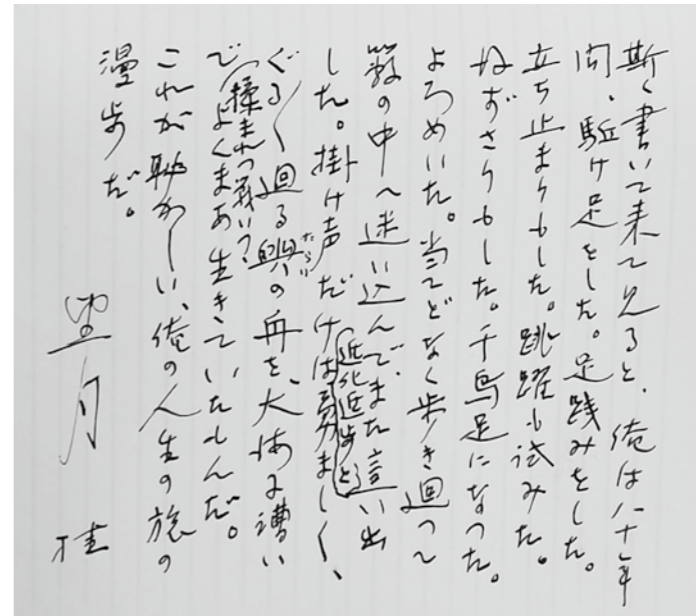 斯く書いて来て見ると、俺は八十年
間、駈け足をした。足踏みをした。
立ち止まりもした。跳躍も試みた。
ねずさりもした。千鳥足になった。
よろめいた。当てどなく歩き廻って
藪の中へ迷い込んで、また這い出
した。掛け声だけは勇ましく、
近代近歩と
ぐる〱廻る
たらい
の舟を、大海に漕い
で
揉まれつ
よくまあ生きていたもんだ。
これが恥かしい、俺の人生の旅の
漫歩だ。
望月 桂